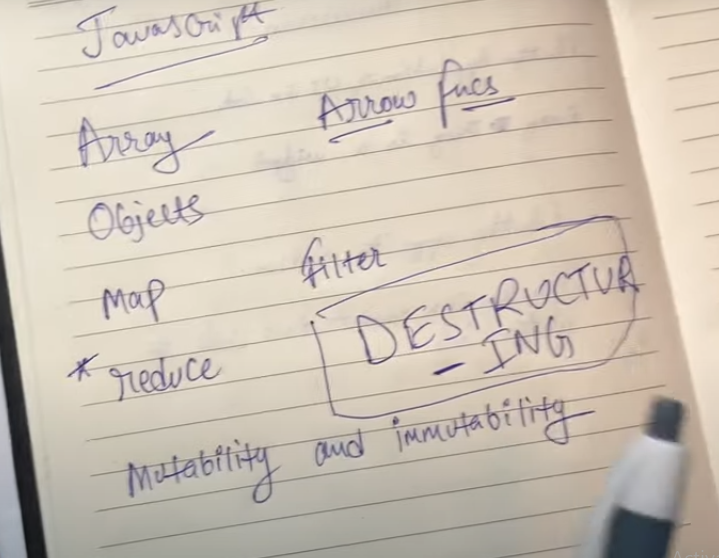 Javascript
Array Arrow fucs
Objects
Map filter
* reduce DESTRUCTUR
- ING
Mutability and immutability